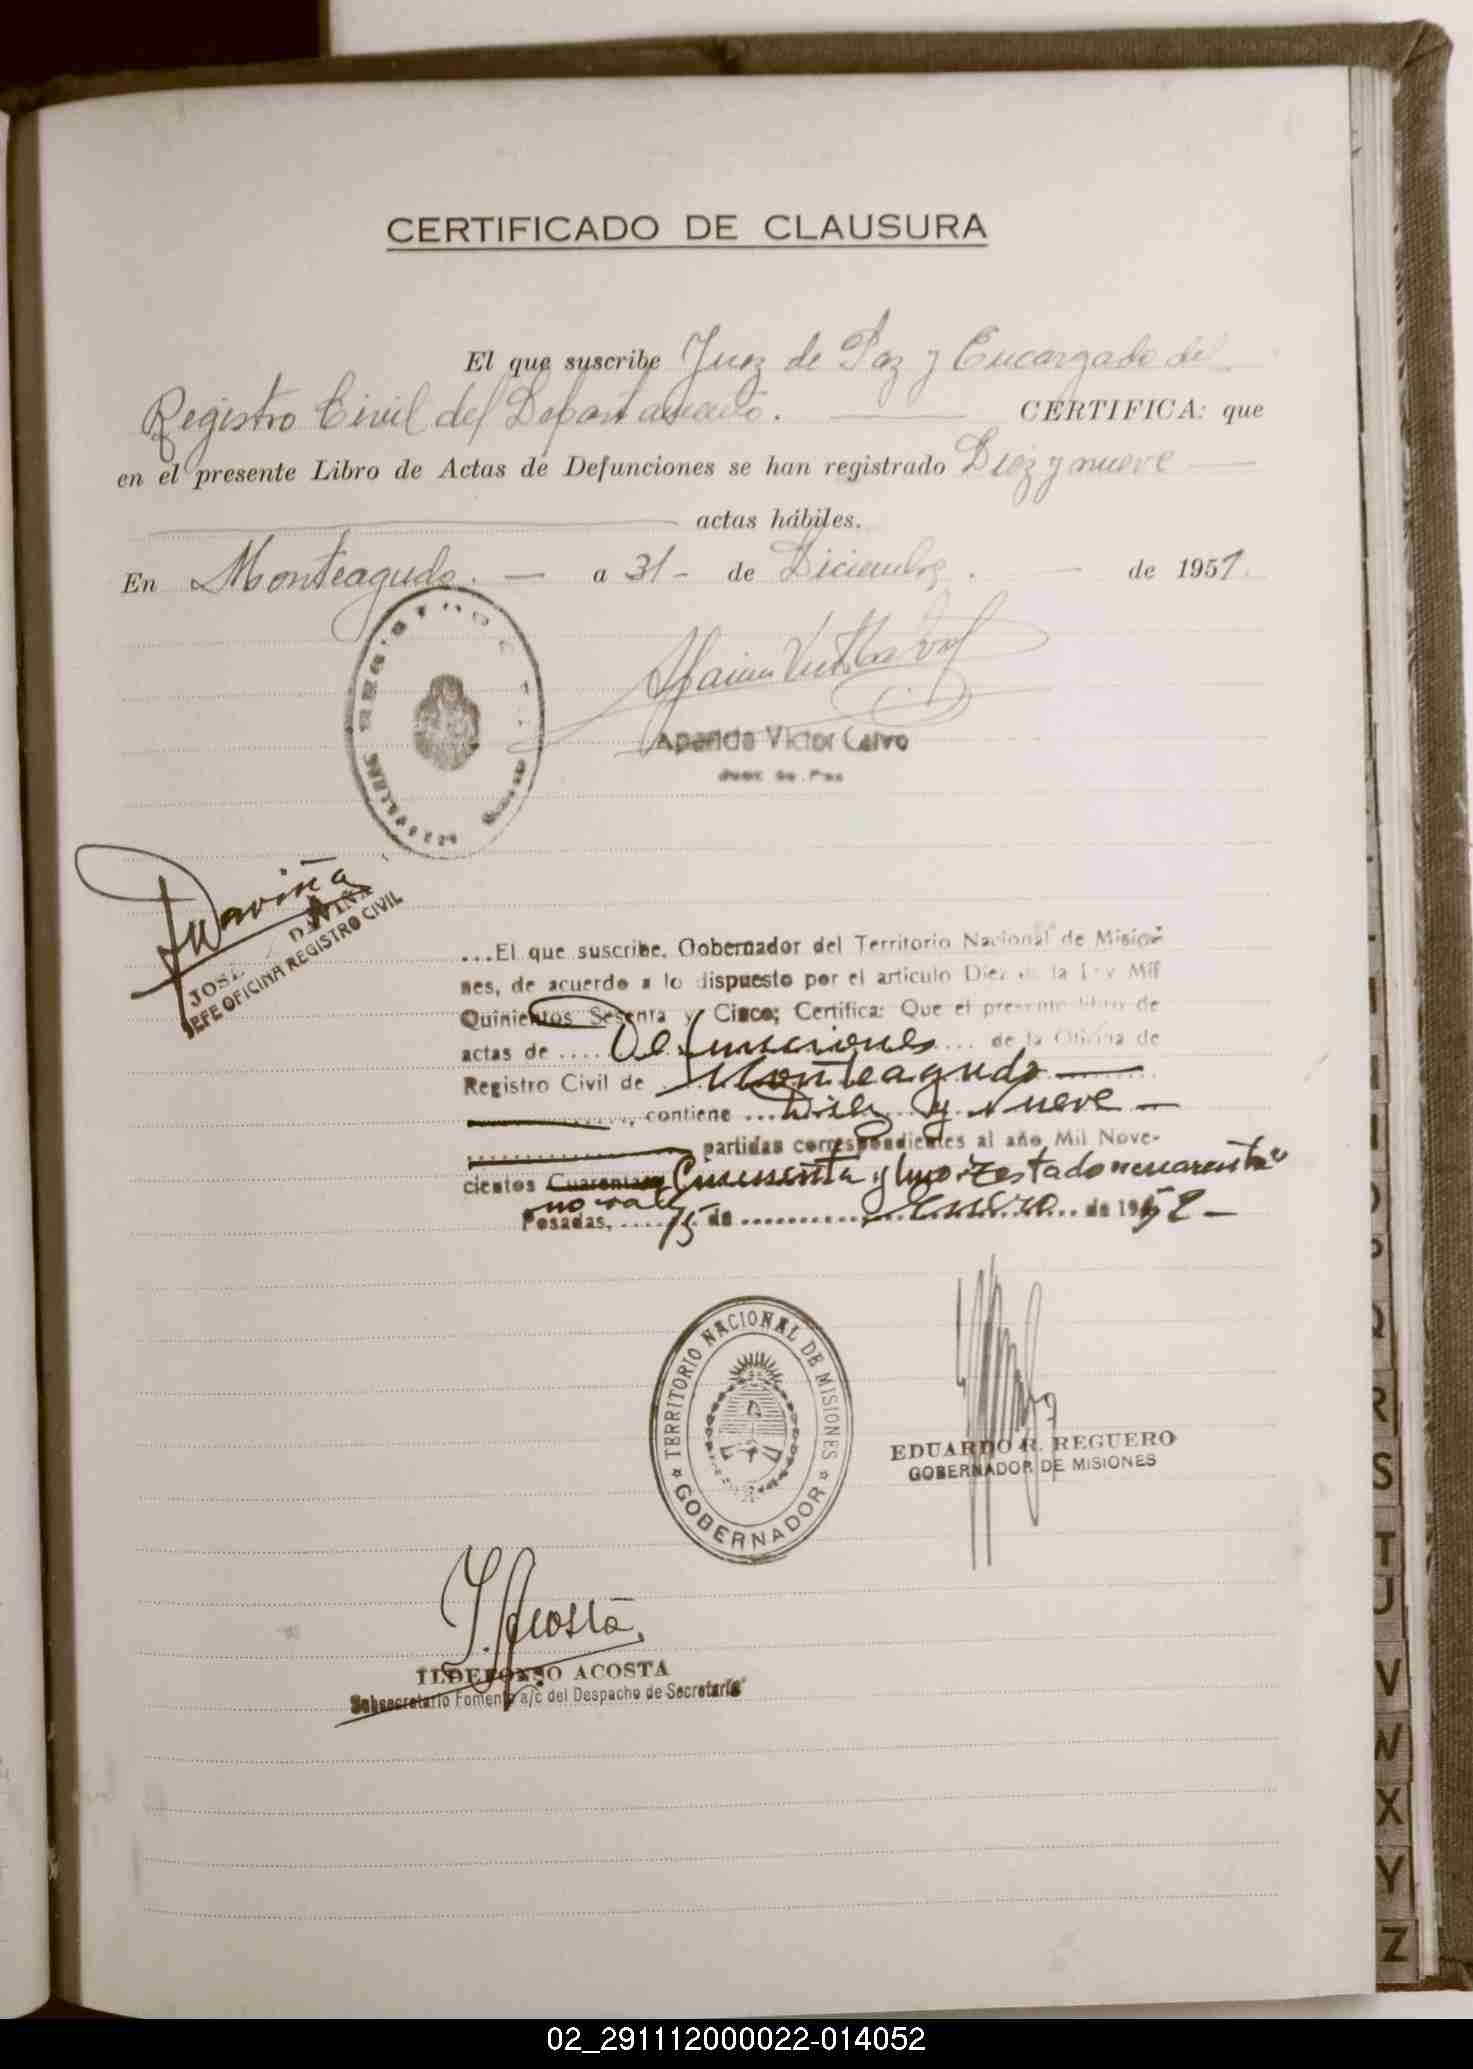 CERTIFICADO DE CLAUSURA
El que suscribe Juez de Paz y Encargado del
Registro Civil del Departamento. CERTIFICA: que
en el presente Libro de Actas de Defunciones se han registrado Diez y nueve
actas hábiles.
En Monteagudo. a 31 - de Diciembre. de 1951.
Aparicio Victor Calvo
Juez de Paz
Daviña
JOSE DAVIÑA
JEFE OFICINA REGISTRO CIVIL
...El que suscribe, Gobernador del Territorio Nacional de Misio-
nes, de acuerdo a lo dispuesto por el artículo Diez de la Ley Mil
Quinientos Sesenta y Cinco; Certifica: Que el presente libro de
actas de .... Defunciones .... de la Oficina de
Registro Civil de Monteagudo
contiene ... Diez y Nueve
partidas correspondientes al año Mil Nove-
cientos Cuarenta Cincuenta y Uno. "Testado cuarenta"
no vale
Posadas, 15 de Enero de 1952 -
TERRITORIO NACIONAL DE MISIONES
GOBERNADOR
EDUARDO R. REGUERO
GOBERNADOR DE MISIONES
I. Acosta
ILDEFONSO ACOSTA
Subsecretario Fomento a/c del Despacho de Secretaría
Q
R
S
T
U
V
W
X
Y
Z
02_291112000022-014052